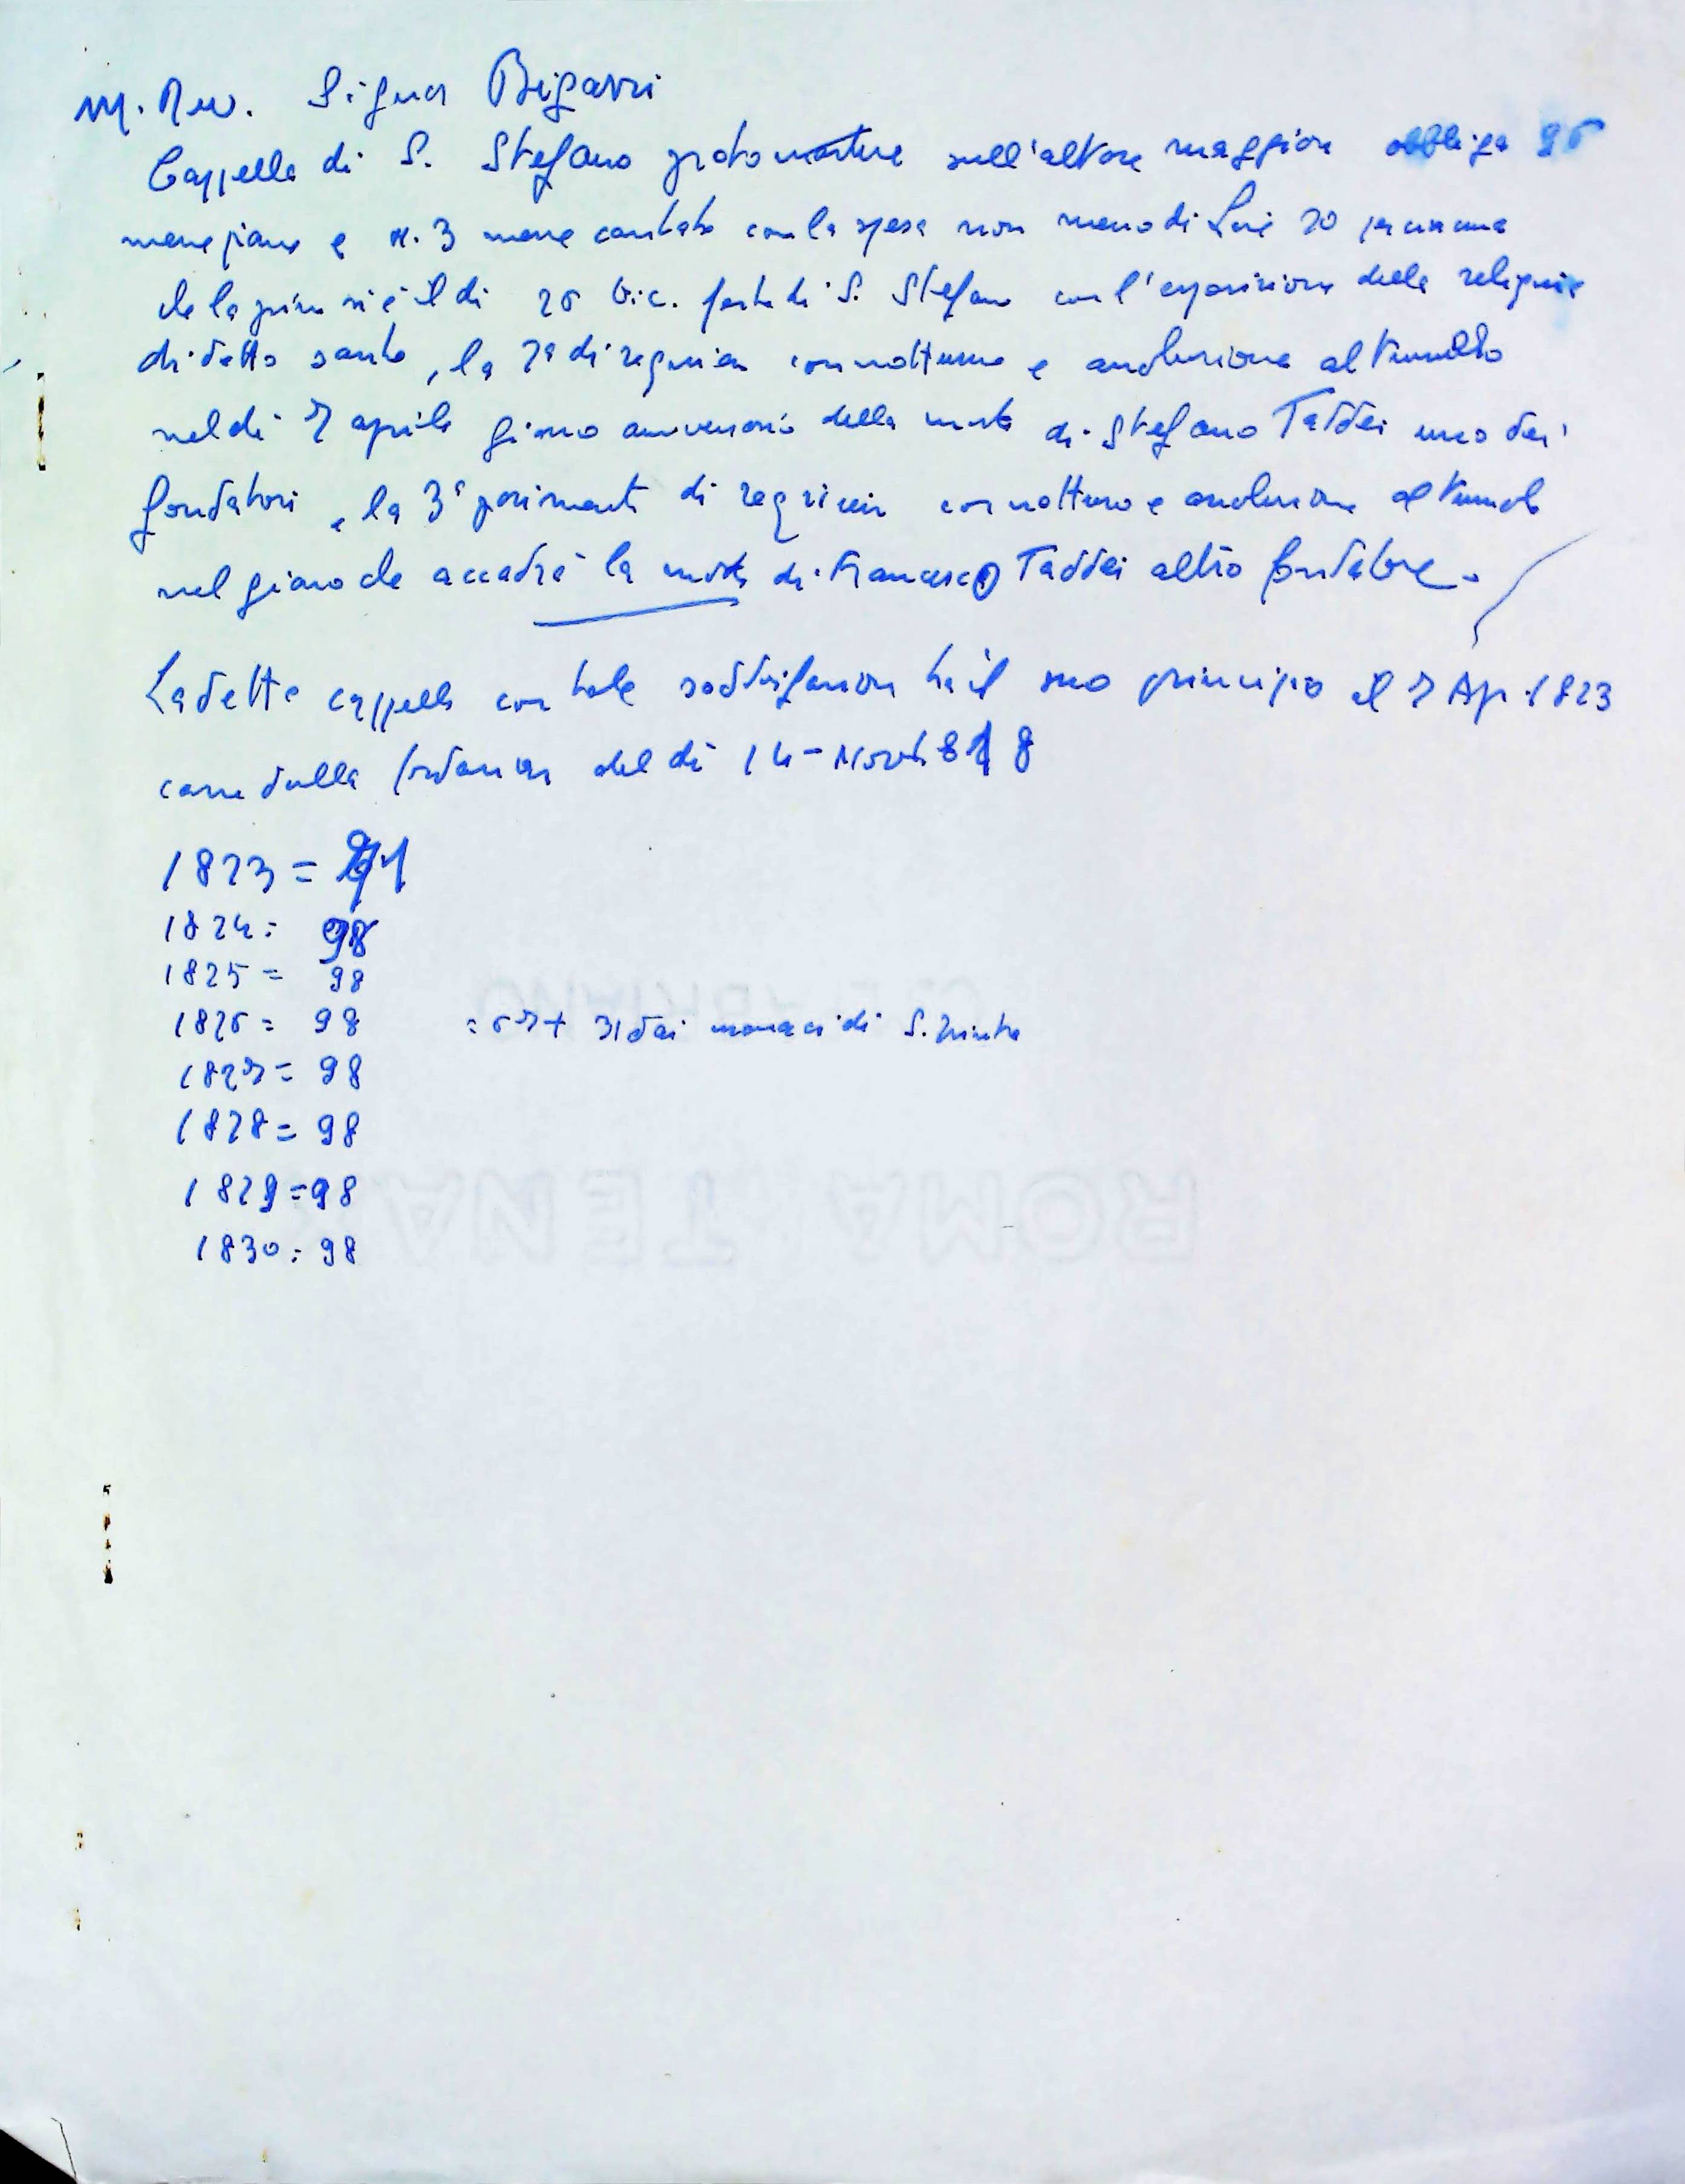 M. Rev. Signor Bigazzi
Cappella di S. Stefano protomartire sull'altare maggiore obbliga 96
messe piane e n. 3 messe cantate con la spesa non meno di Lire 20
che la prima si è il dì 26 Dic. festa di S. Stefano con l'esposizione della reliquia
di detto santo, la 2ª di requiem con notturno e assoluzione al tumulo
nel dì 7 aprile giorno anniversario della morte di Stefano Taddei uno dei
fondatori, la 3ª parimenti di requiem con notturno e assoluzione al tumulo
nel giorno che accadrà la morte di Francesco Taddei altro fondatore.
La detta cappella con tale soddisfazione ha il suo principio il 7 Ap. 1823
come dalla del dì 14 - Nov. 818
1823 =
1824 = 98
1825 = 98
1826 = 98 = 67 + 31 dai monaci di S.
1827 = 98
1828 = 98
1829 = 98
1830 = 98
ROMA TENAX